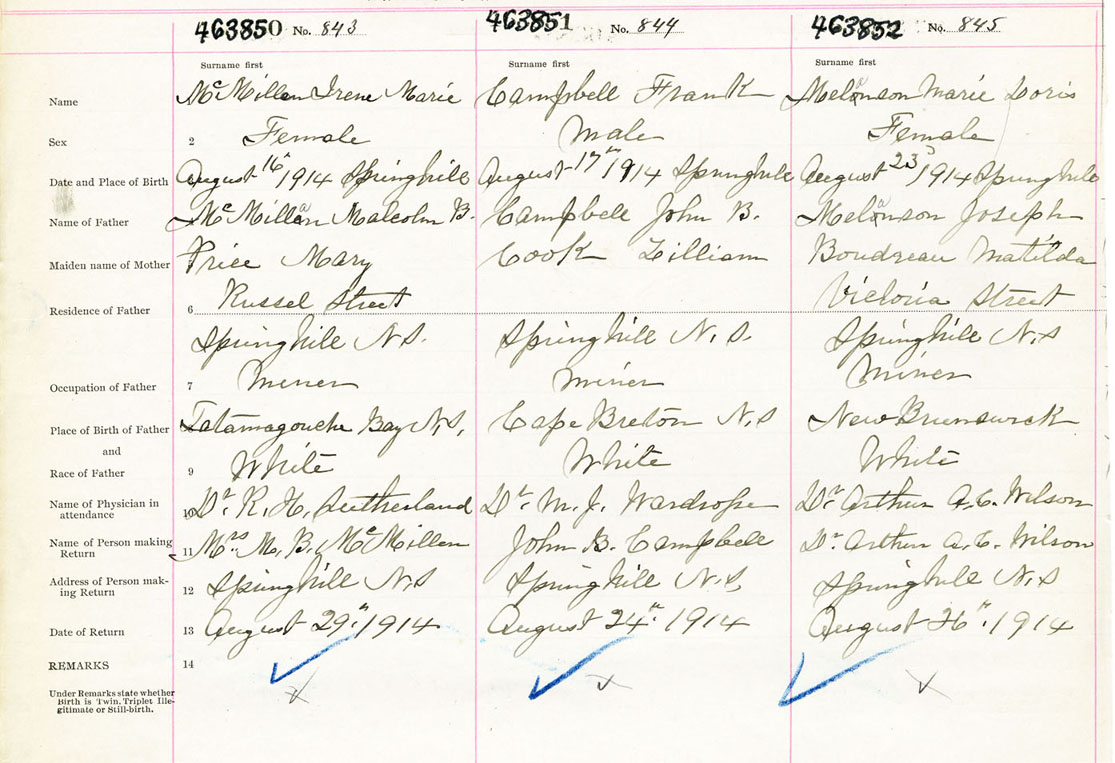 463850 No. 843 463851 No. 844 463852 No. 845
Surname first Surname first Surname first
Name McMillan Irene Marie Campbell Frank Melanson Marie Doris
Sex 2 Female Male Female
Date and Place of Birth August 16th 1914 Springhill August 17th 1914 Springhill August 23 1914 Springhill
Name of Father McMillan Malcolm B. Campbell John B. Melanson Joseph
Maiden name of Mother Price Mary Cook Lilliam Boudreau Matilda
Residence of Father 6 Russel Street Victoria Street
Springhill N.S. Springhill N.S. Springhill N.S
Occupation of Father 7 Miner Miner Miner
Place of Birth of Father Tatamagouche Bay N.S, Cape Breton N.S New Brunswick
and
Race of Father 9 White White White
Name of Physician in 10 Dr R. H. Sutherland Dr M. J. Wardrope Dr Arthur A.C. Wilson
attendance
Name of Person making 11 Mrs M. B. McMillan John B. Campbell Dr Arthur A.C. Wilson
Return
Address of Person mak- 12 Springhill N.S Springhill N.S, Springhill N.S
ing Return
Date of Return 13 August 29th 1914 August 24th 1914 August 26th 1914
REMARKS 14
Under Remarks state whether
Birth is Twin, Triplet Ille-
gitimate or Still-birth.